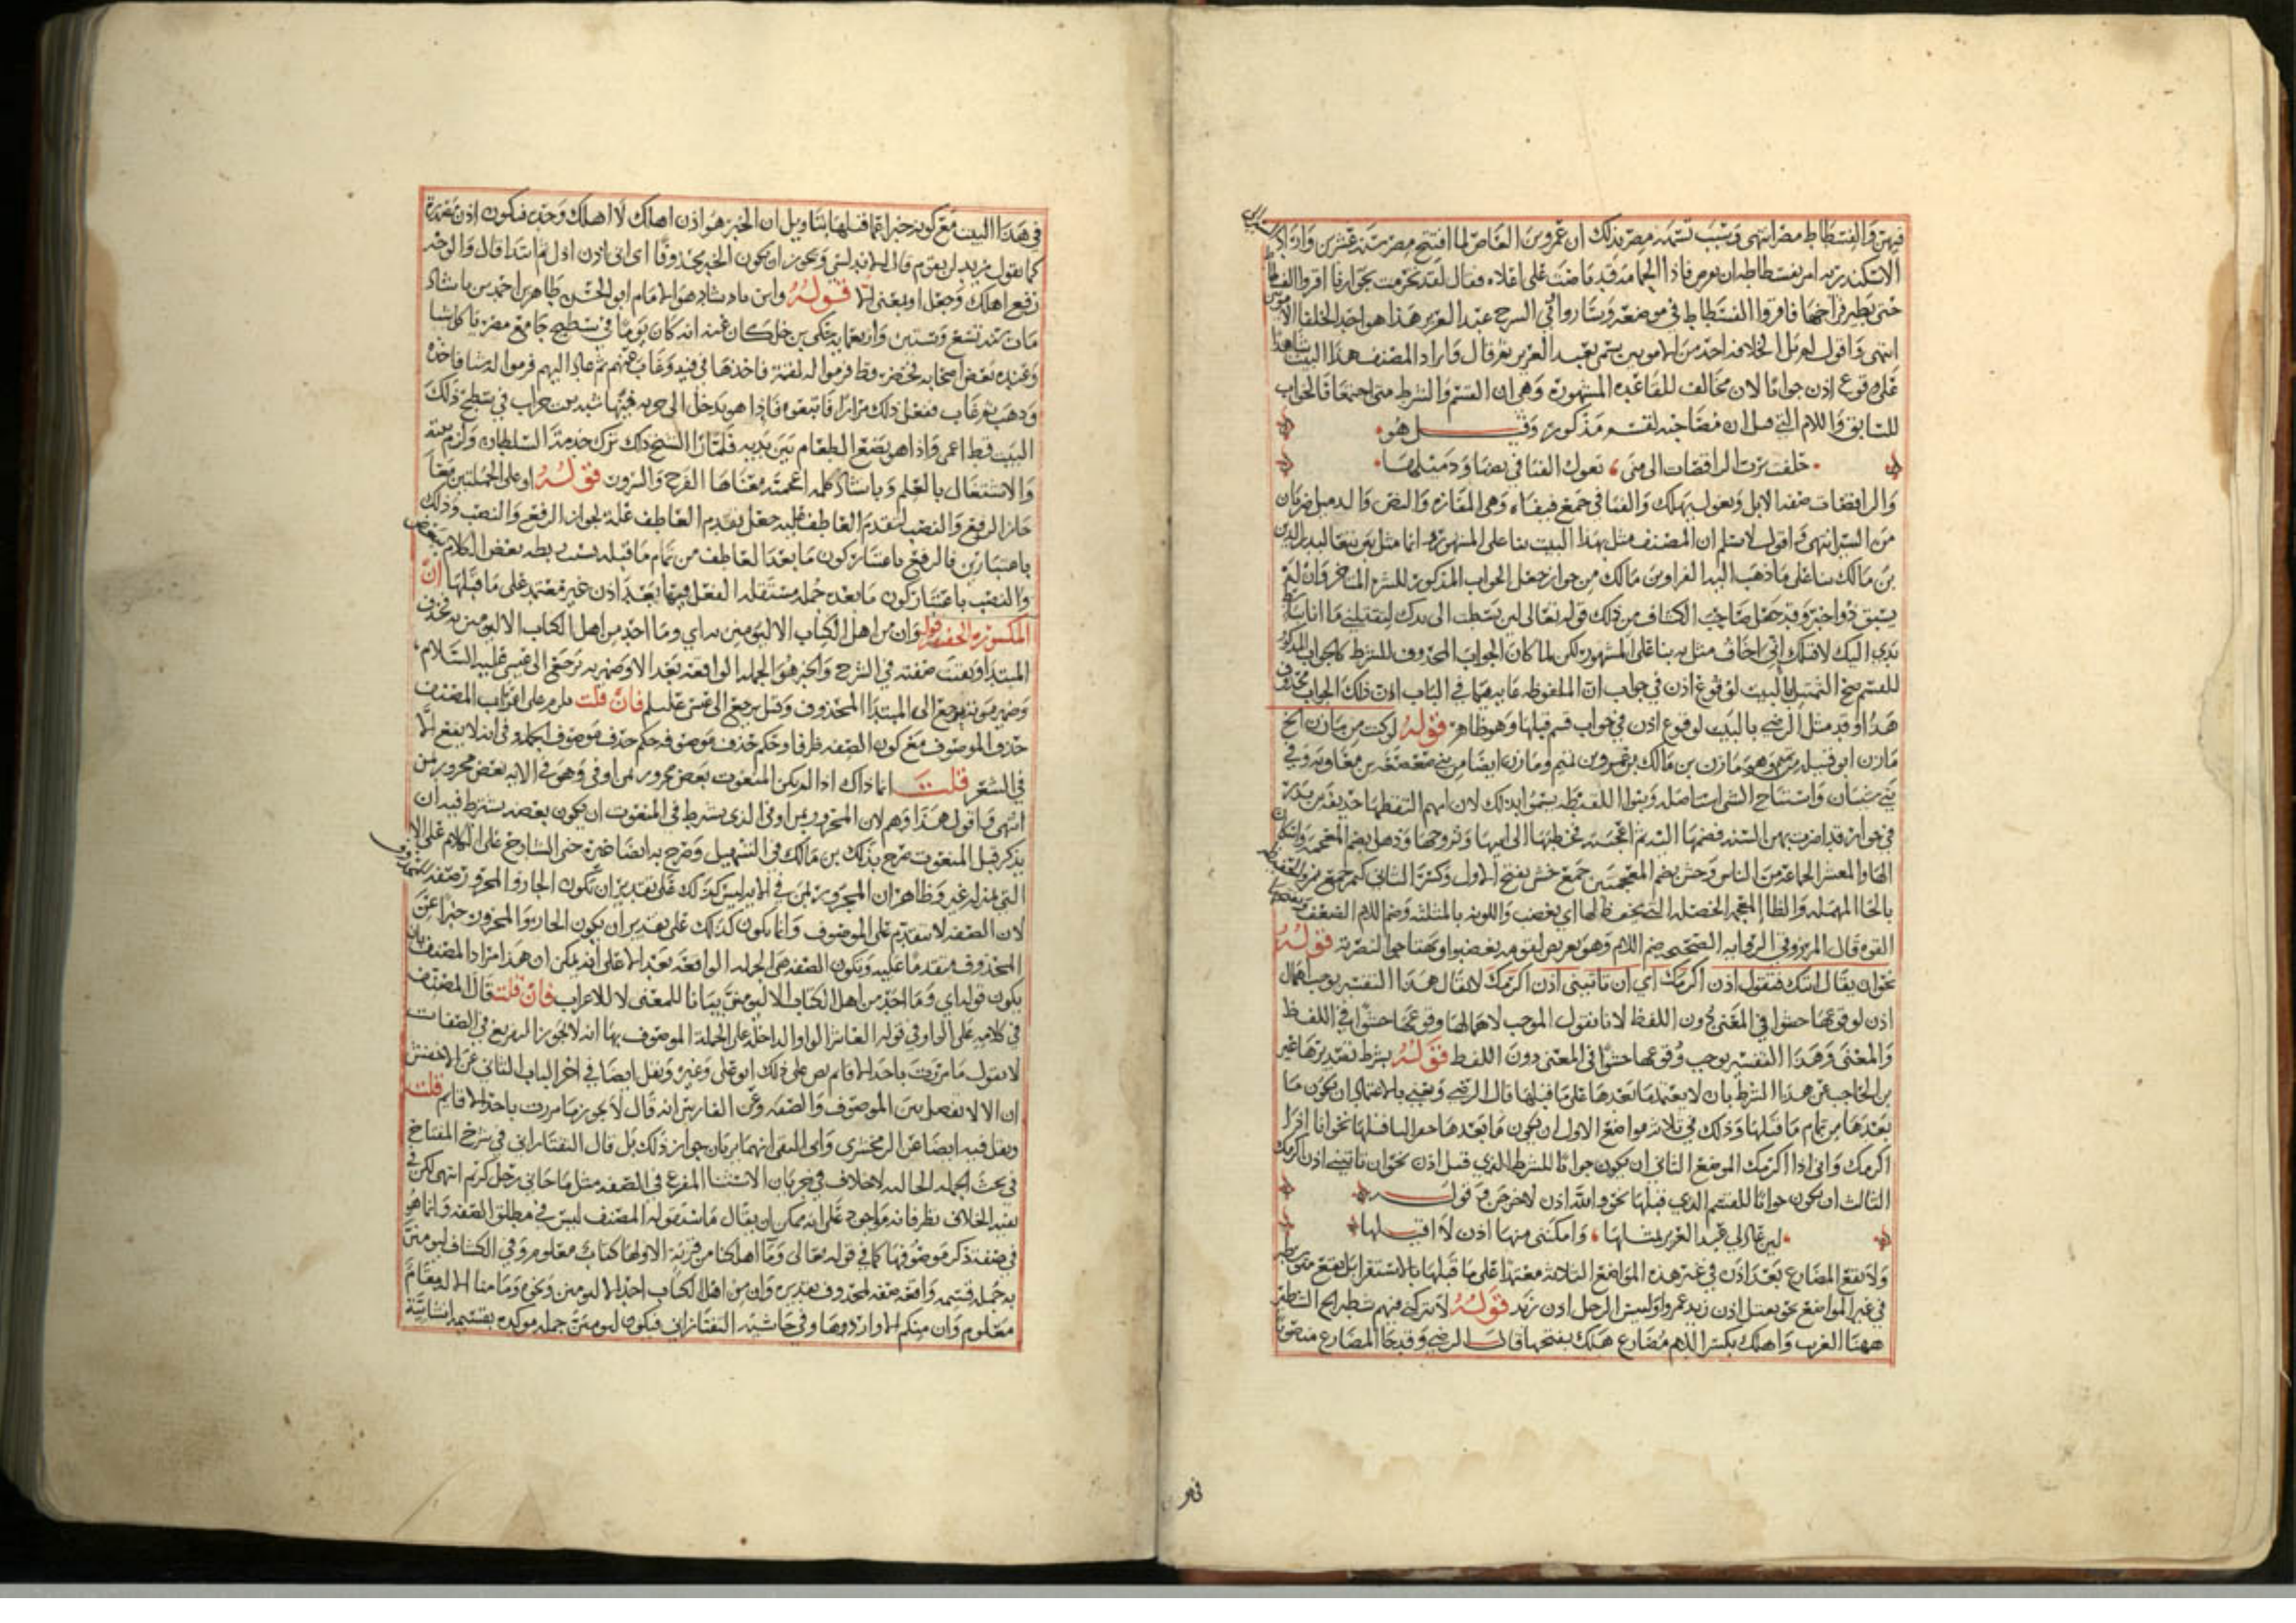 فيهن والفسطاط مصر انتهى وسبب تسمية مصر بذلك ان عمرو بن العاص لما افتتح مصر سنة عشرين واراد
الاسكندرية امر بفسطاطه ان يعوض فاذا الحمامة قد باضت على اعلاه فقال لقد تحرمت بجوارنا اقروا الفسطاط
حتى يطير فراخها فاقروا الفسطاط في موضعه وساروا في الشرح عبد العزيز هذا هو احد الخلفا الامويين
انتهى واقول لم يل الخلافة احد من الامويين يسمى بعبد العزيز ثم قال واراد المصنف هذا البيت شاهدا
على وقوع اذن جوابا لان مخالف للقاعدة المشهورة وهي ان القسم والشرط متى اجتمعا فالجواب
للسابق واللام التي قبل ان مصاحبة لقسم مذكور وقبل هو
حلفت برب الراقصات الى منى تغول الفيافي نصها وذميلها
والراقصات صفة الابل وتغول تهلك والفيافي جمع فيفاة وهي المفازة والنص والذميل ضربان
من السير انتهى واقول لا نسلم ان المصنف مثل بهذا البيت بنا على المشهور وانما مثل به تبعا لبدر الدين
بن مالك بنا على ما ذهب اليه الفرا وبن مالك من جواز جعل الجواب المذكور للشرط المتاخر وان لم
يسبق ذو خبر وقد جعل صاحب الكشاف من ذلك قوله تعالى لئن بسطت الي يدك لتقتلني ما انا بباسط
يدي اليك لاقتلك اني اخاف مثل به بنا على المشهور لكن لما كان الجواب المحذوف للشرط كالجواب المذكور
للقسم صح التمثيل بالبيت لوقوع اذن في جواب ان الملفوظة غايته ما في الباب ان ذلك الجواب محذوف
هذا وقد مثل الرضي بالبيت لوقوع اذن في جواب قسم قبلها وهو ظاهر قوله لو كنت من مازن الخ
مازن ابو قبيلة من تميم وهو مازن بن مالك بن عمرو بن تميم ومازن ايضا من بني صعصعة بن معاوية وفي
بني شيبان واستباح الشي استاصله وبنوا اللقيطة سموا بذلك لان امهم التقطها حذيفة بن بدر
في جوار قد اضرت بهن السنة فضمها اليه ثم اعجبته فخطبها الى ابيها وتزوجها وذهل بضم المعجمة واسكان
الها والمعشر الجماعة من الناس وخشن بضم المعجمتين جمع خشن بفتح الاول وكسر الثاني كنمر جمع نمر والحفيظة
بالحا المهملة والظا المعجمة الخصلة التي يحفظ لها اي يغضب واللوثة بالمثلثة وضم اللام الضعف وبفتحها
القوة قال المرزوقي الرواية الصحيحة ضم اللام وهو تعريض لقومه ليغضبوا ويهتاجوا لنصرته قوله
نحو ان يقال اتيك فتقول اذن اكرمك اي ان تاتيني اذن اكرمك لا يقال هذا التفسير يوجب اهمال
اذن لوقوعها حشوا في المعنى دون اللفظ لانا نقول الموجب لاهمالها وقوعها حشوا في اللفظ
والمعنى وهذا التفسير يوجب وقوعها حشوا في المعنى دون اللفظ قوله بشرط تصديرها عبر
بن الحاجب عن هذا الشرط بان لا يعتمد ما بعدها على ما قبلها قال الرضي ويعني بالاعتماد ان يكون ما
بعدها من تمام ما قبلها وذلك في ثلاثة مواضع الاول ان يكون ما بعدها خبرا لما قبلها نحو انا اذا
اكرمك واني اذا اكرمك الموضع الثاني ان يكون جوابا للشرط الذي قبل اذن نحو ان تاتيني اذن اكرمك
الثالث ان يكون جوابا للقسم الذي قبلها نحو والله اذن لاخرجن وقوله
لئن عاد لي عبد العزيز بمثلها وامكنني منها اذن لا اقيلها
ولا يقع المضارع بعد اذن في غير هذه المواضع الثلاثة معتمدا على ما قبلها بالاستقرا بل تقع متوسطة
في غير المواضع نحو يقتل اذن زيد عمروا وليس الرجل اذن زيد قوله لا تتركني فيهم شطيرا الخ الشطير
ههنا الغريب واهلك بكسر اللام مضارع هلك بفتحها قال الرضي وقد جا المضارع منصوبا
في هذا البيت مع كونه خبرا عما قبلها بتاويل ان الخبر هو اذن اهلك لا اهلك وحده فيكون اذن مصدرة
كما تقول زيد لن يقوم قال الاندلسي ويجوز ان يكون الخبر محذوفا اي اني اذن اذل ثم ابتدا قال والوجه
رفع اهلك وجعل او بمعنى الا قوله وابن بادشاد هو الامام ابو الحسن طاهر بن احمد بن باشاد
مات سنة تسع وستين واربعماية حكى بن خلكان عنه انه كان يوما في سطح جامع مصر ياكل شيا
وعنده بعض اصحابه فحضر قط فرموا له لقمة فاخذها في فيه وغاب عنهم ثم عاد اليهم فرموا له شيا فاخذه
وذهب ثم غاب ففعل ذلك مرارا فاتبعوه فاذا هو يدخل الى خربة فيها شبه بيت خراب في سطح ذلك
البيت قط اعمى واذا هو يضع الطعام بين يديه فلما را الشيخ ذلك ترك خدمة السلطان ولزم بيته
والاشتغال بالعلم وباشاد كلمة اعجمية معناها الفرح والسرور قوله او على الجملتين معا
جاز الرفع والنصب لتقدم العاطف قلبه جعل تقدم العاطف علة لجواز الرفع والنصب وذلك
باعتبارين فالرفع باعتبار كون ما بعد العاطف من تمام ما قبله بسبب ربطه بعض الكلام ببعض
والنصب باعتبار كون ما بعده جملة مستقلة الفعل فيها بعد اذن غير معتمد على ما قبلها ان
المكسورة الخفيفة قوله وان من اهل الكتاب الا ليومنن به اي وما احد من اهل الكتاب الا ليومنن به فحذف
المبتدا وبقيت صفته في الشرح والخبر هو الجملة الواقعة بعد الا وضمير به ترجع الى عيسى عليه السلام
وضمير موته يرجع الى المبتدا المحذوف وقيل يرجع الى عيسى عليه السلام فان قلت يلزم على اعراب المصنف
حذف الموصوف مع كون الصفة ظرفا وحكم حذف موصوفه حكم حذف موصوف الجملة في انه لا يقع الا
في الشعر قلت انما ذاك اذا لم يكن المنعوت بعض مجرور بمن او في وهو في الاية بعض مجرور بمن
انتهى واقول هذا وهم لان المجرور بمن او في الذي يشترط في المنعوت ان يكون بعضه يشترط فيه ان
يذكر قبل المنعوت صرح بذلك بن مالك في التسهيل وصرح به ايضا غيره حتى الشارح على الكلام على الا
التي بمنزلة غير وظاهر ان المجرور بمن في الاية ليس كذلك على تقدير ان يكون الجار والمجرور صفة للمحذوف
لان الصفة لا تتقدم على الموصوف وانما يكون كذلك على تقدير ان يكون الجار والمجرور خبرا عن
المحذوف متقدما عليه وتكون الصفة هي الجملة الواقعة بعد الا على انه يمكن ان هذا مراد المصنف بان
يكون قوله اي وما احد من اهل الكتاب الا ليومنن بيانا للمعنى لا للاعراب فان قلت قال المصنف
في كلامه على الواو في قوله العاشر الواو الداخلة على الجملة الموصوف بها انه لا يجوز التفريغ في الصفات
لا تقول ما مررت باحد الا قايم نص على ذلك ابو علي وغيره ونقل ايضا في اخر الباب الثاني عن الاخفش
ان الا لا تفصل بين الموصوف والصفة وعن الفارسي انه قال لا يجوز ما مررت باحد الا قايم قلت
ونقل فيه ايضا عن الزمخشري وابي البقا انهما يريان جواز ذلك بل قال التفتازاني في شرح المفتاح
في بحث الجملة الحالية لا خلاف في جريان الاستثنا المفرغ في الصفة مثل ما جاني رجل الا كريم انتهى لكن في
نفيه الخلاف نظر فانه موجود على انه يمكن ان يقال ما سيقوله المصنف ليس في مطلق الصفة وانما هو
في صفة ذكر موصوفها كما في قوله تعالى وما اهلكنا من قرية الا ولها كتاب معلوم وفي الكشاف ليومنن
به جملة قسمية واقعة صفة لمحذوف تقديره وان من اهل الكتاب احد الا ليومنن ونحوه وما منا الا له مقام
معلوم وان منكم الا واردها وفي حاشية التفتازاني فيكون ليومنن جملة موكدة بقسمية انشائية
في